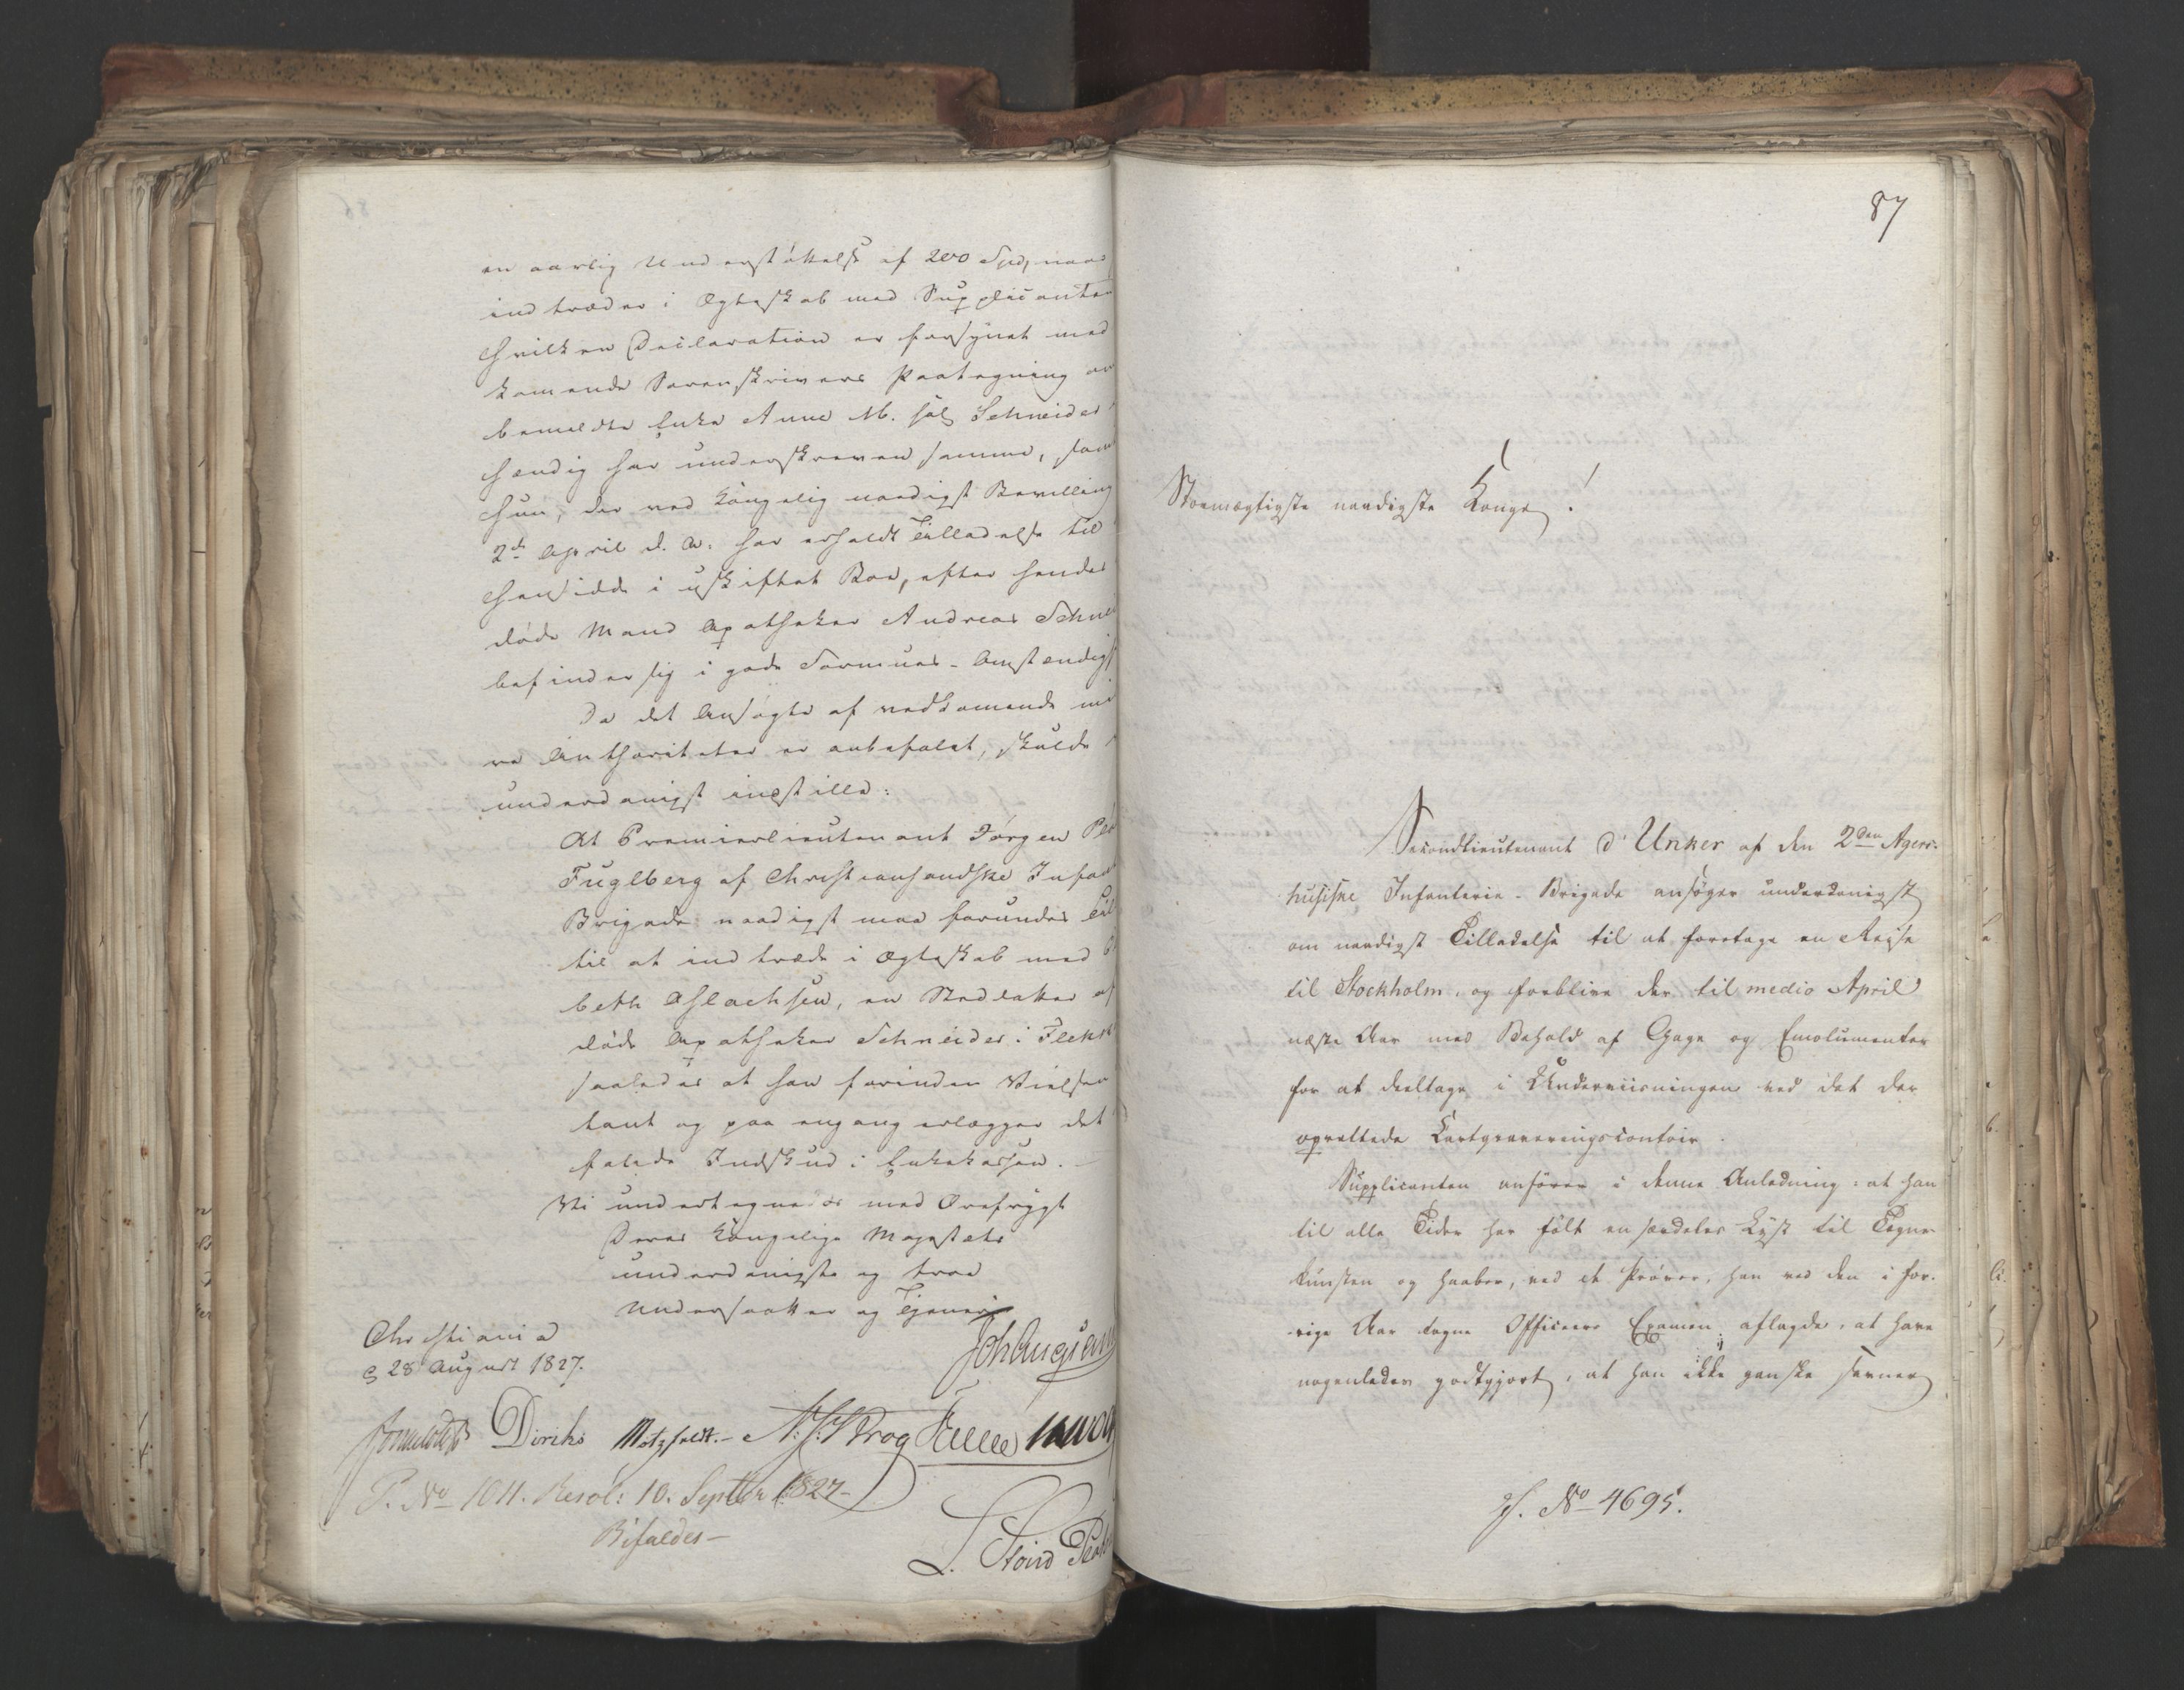 en aarlig Understøttelse af 200 Spd, naar
indtræder i Ægteskab med Supplicanten
hvilken Declaration er forsynet med
komende Sorenskrivers Paategning om
bemeldte Enke Anne M. sal Schneider
hændig har underskreven samme, samt
hun, der ved Kongelig naadigst Bevilling
2de April d. A. har erholdt Tilladelse til
hensidde i uskiftet Boe, efter hendes
døde Mand Apotheker Andreas Schne
befinder sig i gode Formues-Omstændigh
Da det Ansøgte af vedkomende mi
re Authoriteter er anbefalet, skulde
underdanigst indstille:
At Premierlieutenant Jørgen
Fuglberg af Christiansandske Infan
Brigade naadigst maa forundes Til
til at indtræde i Ægteskab med
beth Aslachsen, en Stedsatter af
døde Apotheker Schneider i Flekk
saaledes at han forinden Vielsen
tant og paa engang erlægger det
falede Indskud i Enkekassen. -
Vi undertegne os med Ærefrygt
Deres Kongelige Majestæts
underdanigste og troe
Undersaatter og Tjenere
Christiania
d 28 August 1827.
Diriks Motzfeldt.- Krog
P. No 1011. Resol: 10. Septbr 1827-
Bifaldes-
87
Stormægtigste naadigste Konge!
Secondlieutenant d'Unker af den 2den Agers-
husiske Infanterie-Brigade ansøger underdanigst
om naadigst Tilladelse til at foretage en Reise
til Stockholm, og forblive der til medio April
næste Aar med Behold af Gage og Emolumenter
for at deeltage i Underviisningen ved det der
oprettede Kartgraveringscontoir.
Supplicanten anfører i denne Anledning: at han
til alle Tider har følt en særdeles Lyst til Tegne-
kunsten og haaber, ved de Prøver, han ved den i for-
rige Aar tagne Officeers Examen aflagde, at have
nogenledes godtgjort, at han ikke ganske savner
J. No 4695.